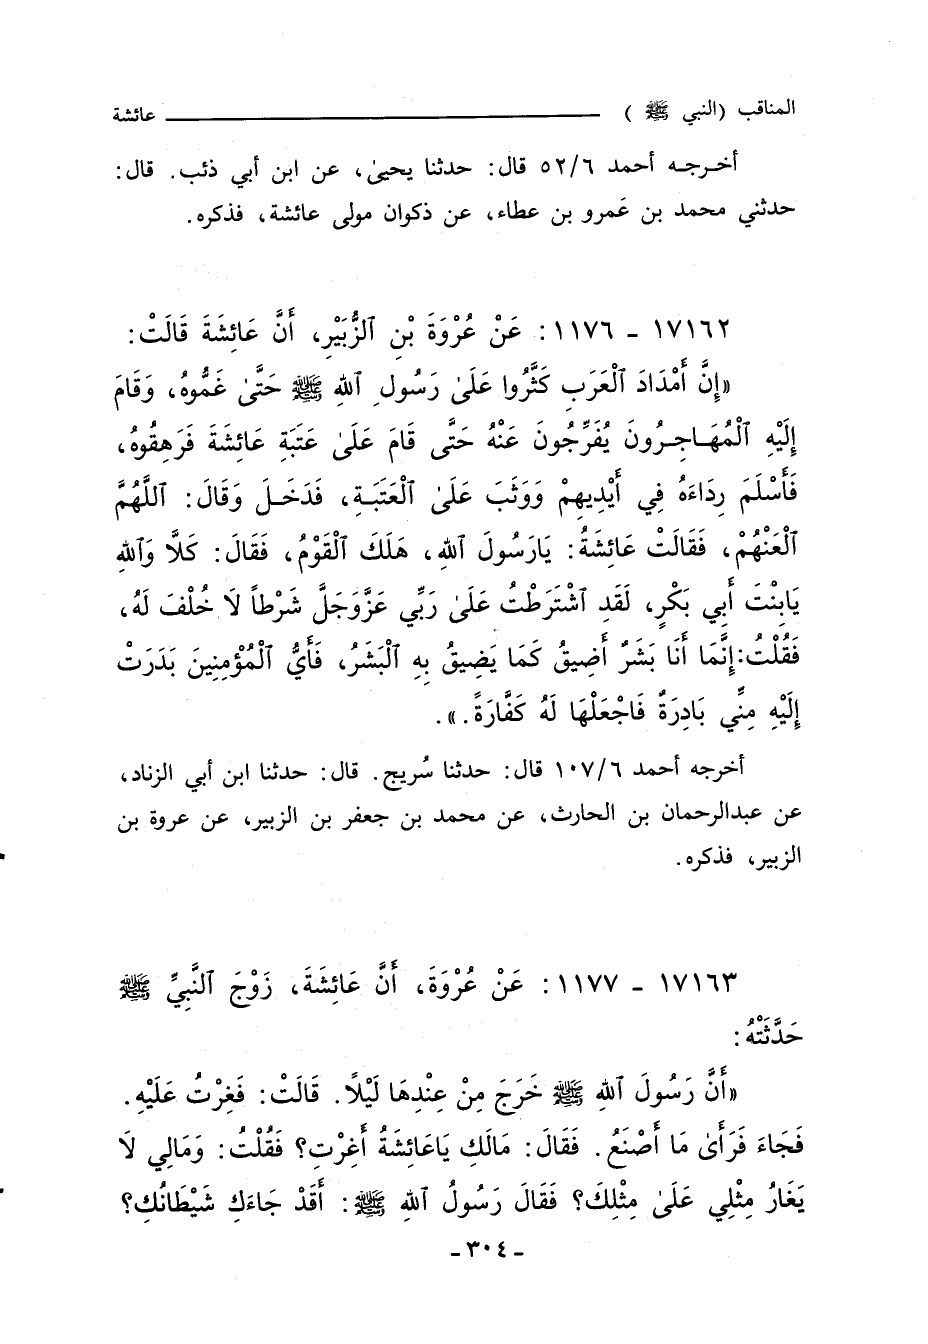 المناقب (النبي ﷺ) ــــــــــــ عائشة
أخرجه أحمد ٥٢/٦ قال: حدثنا يحيىٰ، عن ابن أبي ذئب. قال:
حدثني محمد بن عَمرو بن عطاء، عن ذكوان مولى عائشة، فذكره.
١٧١٦٢ - ١١٧٦: عَنْ عُرْوَةَ بْنِ ٱلزُّبَيْرِ، أَنَّ عَائِشَةَ قَالَتْ:
«إِنَّ أَمْدَادَ ٱلْعَرَبِ كَثَّرُوا عَلَىٰ رَسُولِ ٱللهِ ﷺ حَتَّىٰ غَمُّوهُ، وَقَامَ
إِلَيْهِ ٱلْمُهَاجِرُونَ يُفَرِّجُونَ عَنْهُ حَتَّى قَامَ عَلَىٰ عَتَبَةِ عَائِشَةَ فَرَهِقُوهُ،
فَأَسْلَمَ رِدَاءَهُ فِي أَيْدِيهِمْ وَوَثَبَ عَلَىٰ ٱلْعَتَبَةِ، فَدَخَلَ وَقَالَ: ٱللَّهُمَّ
ٱلْعَنْهُمْ، فَقَالَتْ عَائِشَةُ: يَارَسُولَ ٱللهِ، هَلَكَ ٱلْقَوْمُ، فَقَالَ: كَلَّا وَٱللهِ
يَابِنْتَ أَبِي بَكْرٍ، لَقَدِ ٱشْتَرَطْتُ عَلَىٰ رَبِّي عَزَّوَجَلَّ شَرْطاً لَا خُلْفَ لَهُ،
فَقُلْتُ: إِنَّمَا أَنَا بَشَرٌ أَضِيقُ كَمَا يَضِيقُ بِهِ ٱلْبَشَرُ، فَأَيُّ ٱلْمُؤْمِنِينَ بَدَرَتْ
إِلَيْهِ مِنِّي بَادِرَةٌ فَاجْعَلْهَا لَهُ كَفَّارَةً.».
أخرجه أحمد ١٠٧/٦ قال: حدثنا سُريج. قال: حدثنا ابن أبي الزناد،
عن عبدالرحمان بن الحارث، عن محمد بن جعفر بن الزبير، عن عروة بن
الزبير، فذكره.
١٧١٦٣ - ١١٧٧: عَنْ عُرْوَةَ، أَنَّ عَائِشَةَ، زَوْجَ ٱلنَّبِيِّ ﷺ
حَدَّثَتْهُ:
«أَنَّ رَسُولَ ٱللهِ ﷺ خَرَجَ مِنْ عِنْدِهَا لَيْلاً. قَالَتْ: فَغِرْتُ عَلَيْهِ.
فَجَاءَ فَرَأَىٰ مَا أَصْنَعُ. فَقَالَ: مَالَكِ يَاعَائِشَةُ أَغِرْتِ؟ فَقُلْتُ: وَمَالِي لَا
يَغَارُ مِثْلِي عَلَىٰ مِثْلِكَ؟ فَقَالَ رَسُولُ ٱللهِ ﷺ: أَقَدْ جَاءَكِ شَيْطَانُكِ؟
- ٣٠٤ -